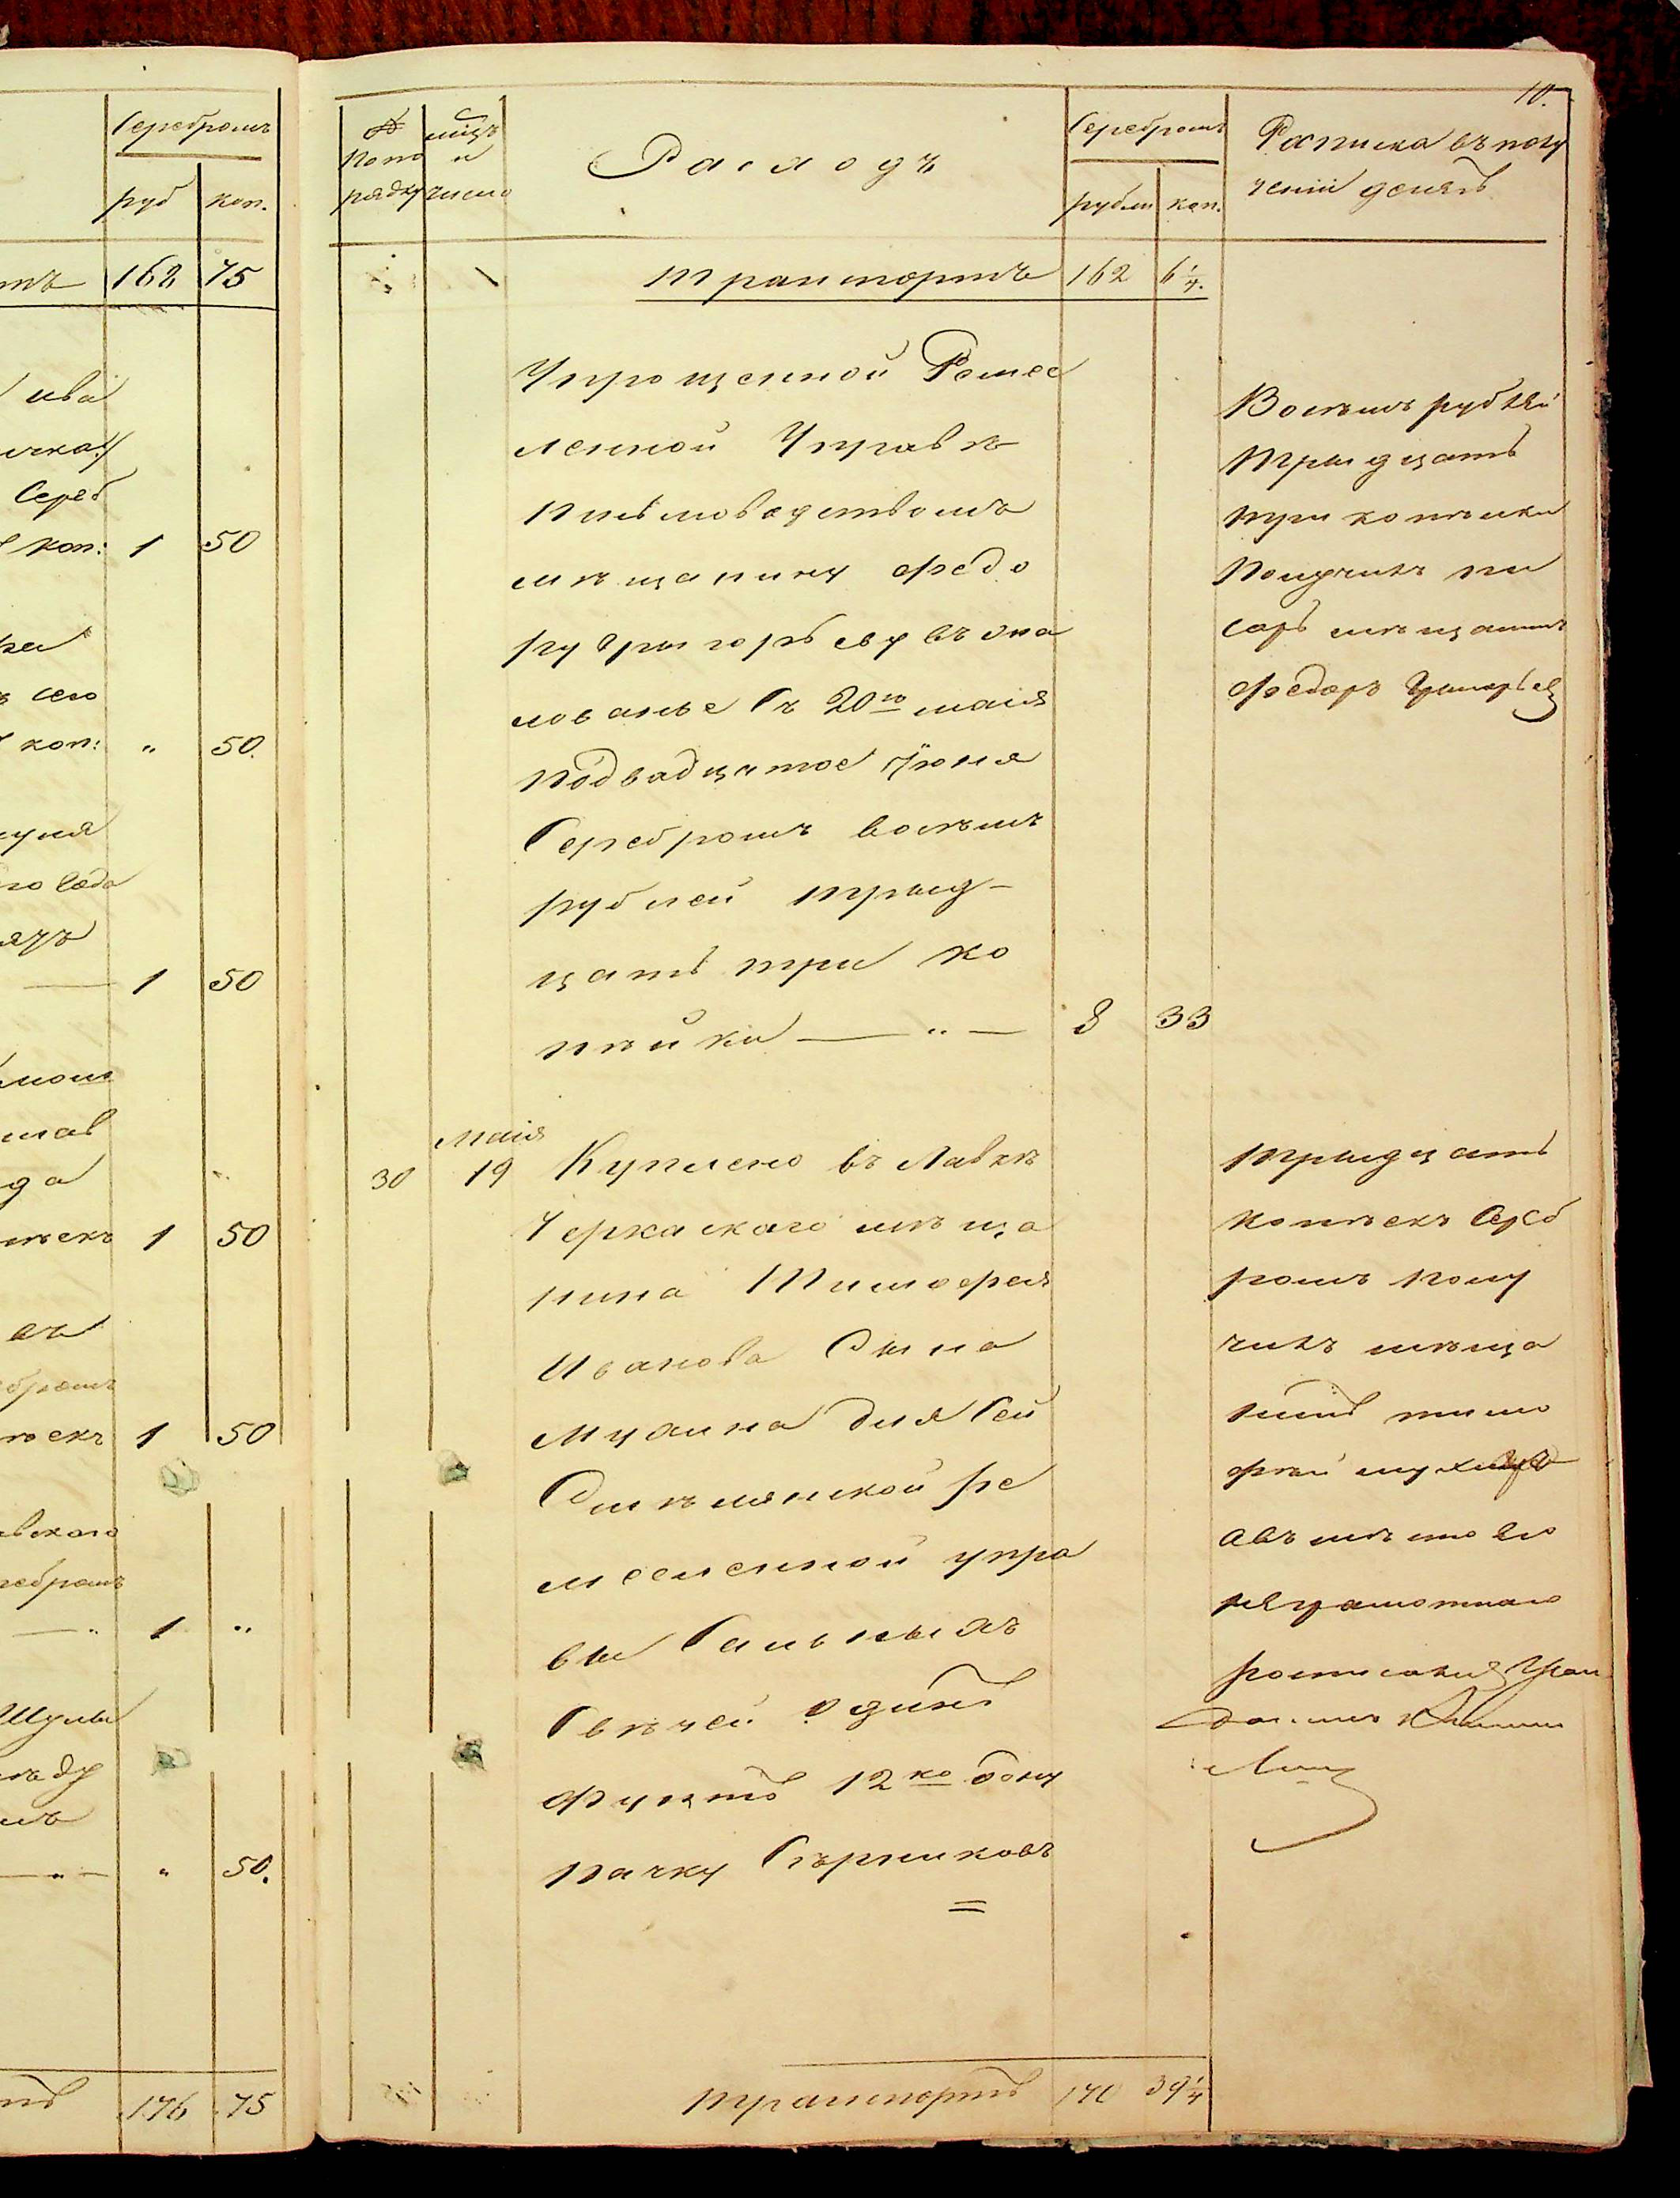 Серебромъ
руб коп.
тъ 168 75
ива
ичка:/
Сереб
коп: 1 50
сего
коп: " 50.
1 50
да
пѣекъ 1 50
ебромъ
пѣекъ 1 50
евского
ребромъ
— " 1 "
Шулы
—"— " 50.
тъ 176 75
10.
№ по по рядку
мѣцъ и число
Расходъ
Серебромъ
рубли коп.
Расписка въ полу
ченіи денегъ
Транспортъ 162 6 1/4.
Упрощенной Ремес
ленной Управѣ
письмоводствомъ
мѣщанину Федо
ру Григорьеву въ жа
лованье Съ 20го маія
по двадцатое Іюня
Серебромъ восѣмъ
рублей трыд-
цать три ко
пѣйки — " — 8 33
Восѣмъ рублей
трыдцать
три копѣики
получилъ пи
сарь мѣщанинъ
Федоръ Григорьев
Маія
30 19 Куплено въ Лавкѣ
Черкаского мѣща
нина Тимофея
Иванова Сына
для Сей
Смѣлянской ре
месленной упра
вы Сальныхъ
Свѣчей одинъ
Фунтъ 12ко одну
пачку Сѣрниковъ
=
Трыдцать
копѣекъ Сереб
ромъ полу
чилъ мѣща
нинъ тимо
фѣй
а вмѣсто его
неграмотнаго
росписался
Транспортъ 170 39 1/4